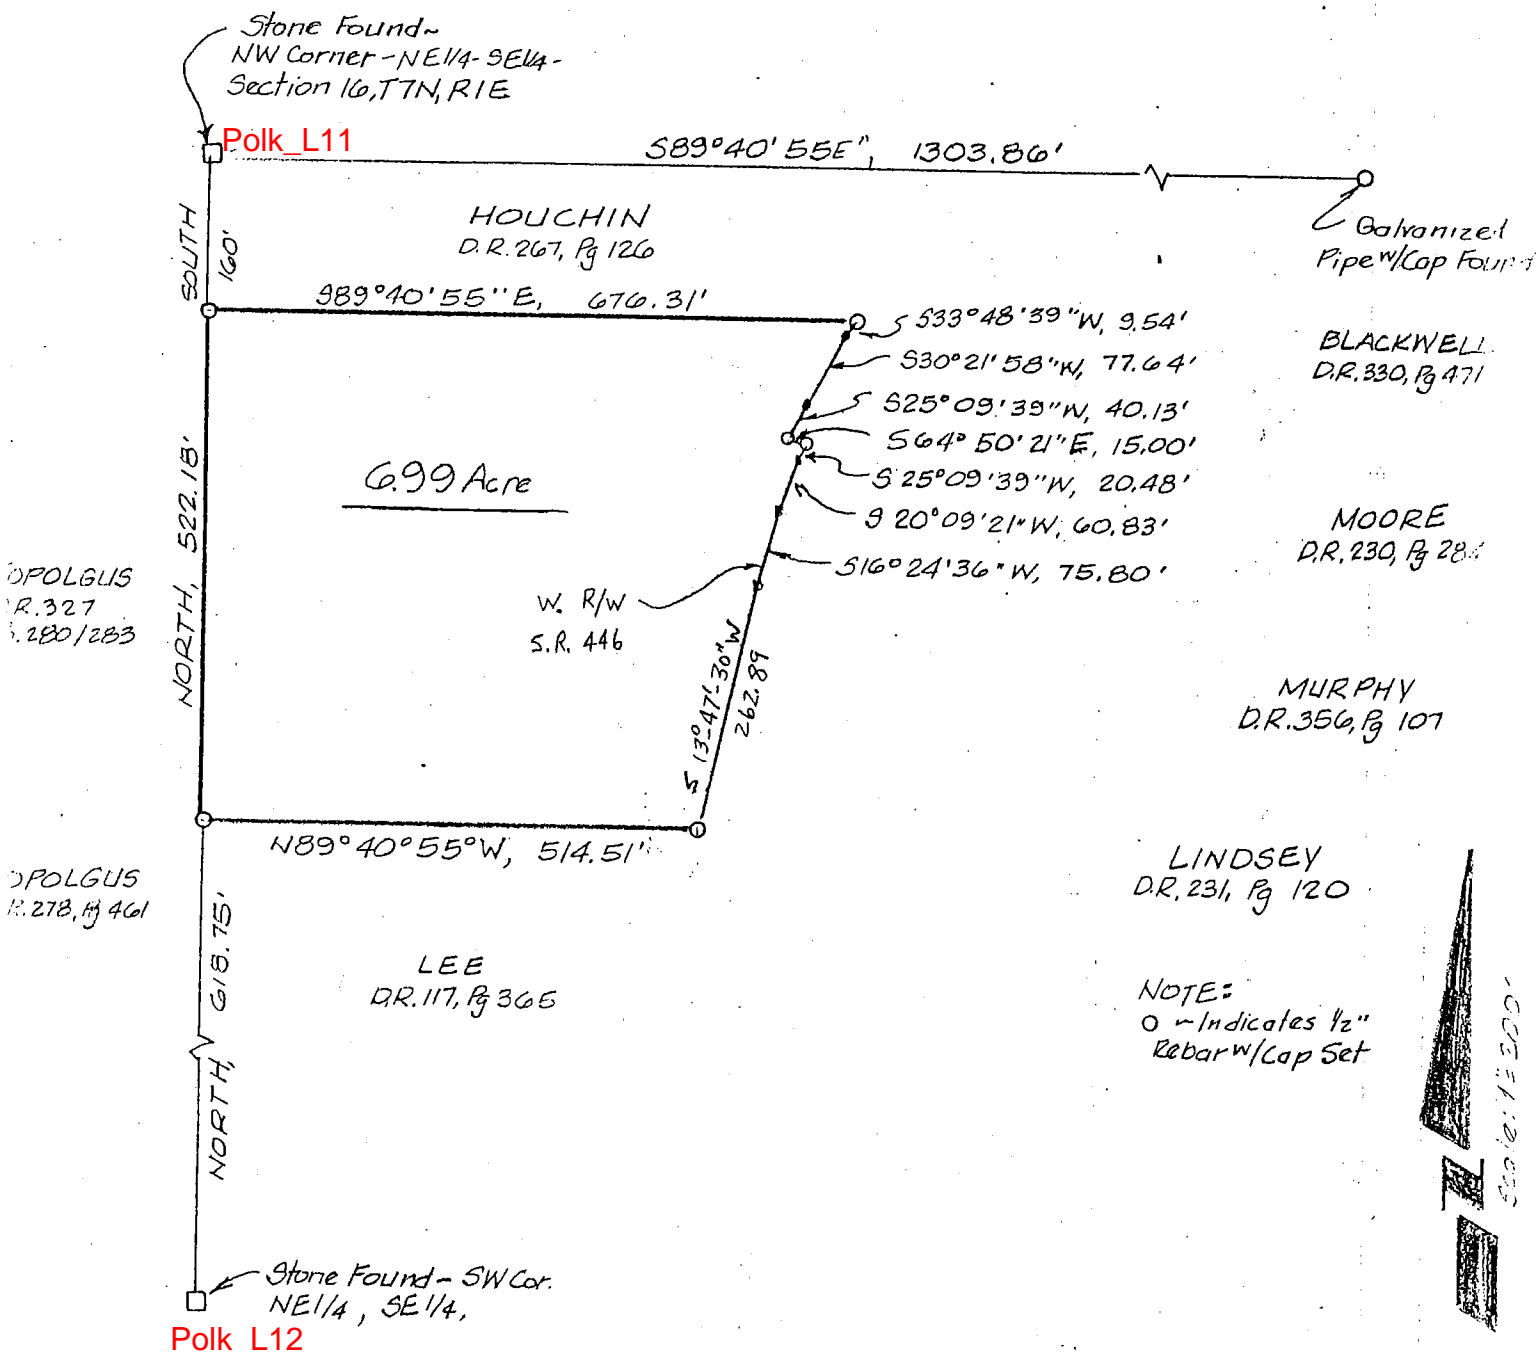 Stone Found~
NW Corner-NE1/4-SE1/4-
Section 16, T7N, R1E
Polk_L11
S89°40'55E", 1303.86'
Galvanized
Pipe w/Cap Found
SOUTH
160'
HOUCHIN
D.R. 267, Pg 126
S89°40'55"E, 676.31'
S33°48'39"W, 9.54'
S30°21'58"W, 77.64'
S25°09'39"W, 40.13'
S64°50'21"E, 15.00'
S25°09'39"W, 20.48'
S20°09'21"W, 60.83'
S16°24'36"W, 75.80'
BLACKWELL
D.R. 330, Pg 471
6.99 Acre
NORTH, 522.18'
MOORE
D.R. 230, Pg 28
OPOLGUS
R. 327
280/283
W. R/W
S.R. 446
S 13°-47'-30"W
262.89
MURPHY
D.R. 356, Pg 107
N89°40°55°W, 514.51'
LINDSEY
D.R. 231, Pg 120
OPOLGUS
R. 278, Pg 461
NORTH, 618.75'
LEE
D.R. 117, Pg 365
NOTE:
O ~Indicates 1/2"
Rebar w/Cap Set
N
Stone Found - SW Cor.
NE1/4, SE1/4,
Polk_L12